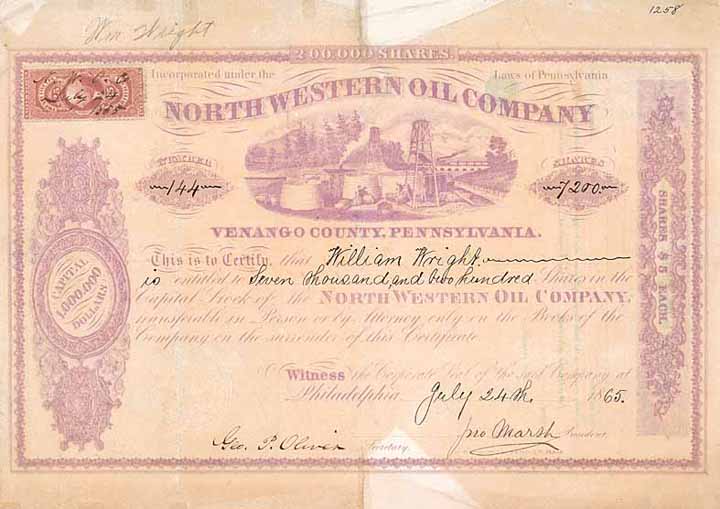 1258
Wm Wright
200,000 SHARES.
Incorporated under the Laws of Pennsylvania
NORTH WESTERN OIL COMPANY
NUMBER SHARES
144 7200
VENANGO COUNTY, PENNSYLVANIA.
This is to Certify, that William Wright
is entitled to Seven thousand and two hundred Shares in the
Capital Stock of the NORTH WESTERN OIL COMPANY,
transferable in Person or by Attorney only on the Books of the
Company on the surrender of this Certificate
Witness the Corporate Seal of the said Company at
Philadelphia July 24th. 1865.
Geo. P. Oliver Secretary. Jno Marsh President.
CAPITAL
1,000,000
DOLLARS
SHARES $5 EACH.